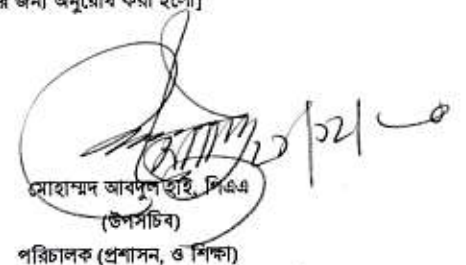 র জন্য অনুরোধ করা হলো]
মোহাম্মদ আবদুল হাই, পিএএ
(উপসচিব)
পরিচালক (প্রশাসন, ও শিক্ষা)